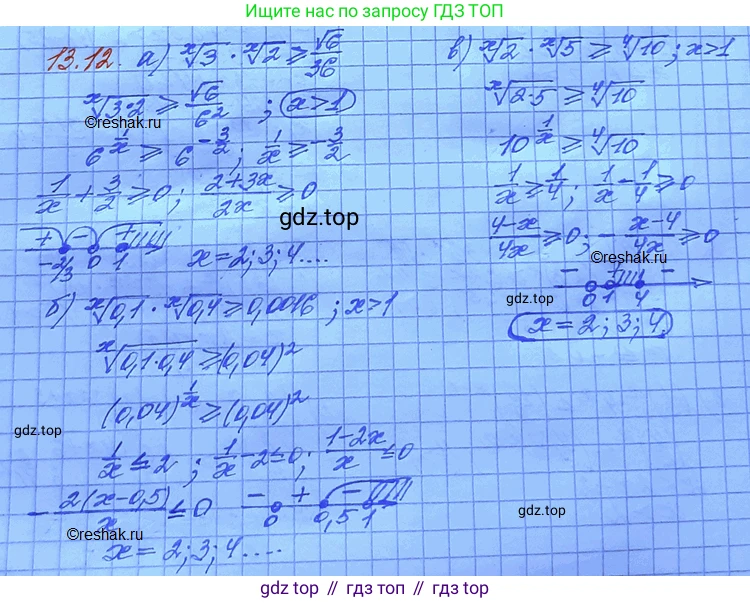 Ищите нас по запросу ГДЗ ТОП
13.12. а) ˣ√3 · ˣ√2 ≥ √6/36
ˣ√(3·2) ≥ √6/6² ; x>1
©reshak.ru
6^(1/x) ≥ 6^(-3/2) ; 1/x ≥ -3/2
1/x + 3/2 ≥ 0 ; (2+3x)/2x ≥ 0
gdz.top
+ − +
-2/3 0 1 x = 2; 3; 4....
©reshak.ru
б) ˣ√0,1 · ˣ√0,4 ≥ 0,0016 ; x>1
ˣ√(0,1·0,4) ≥ (0,04)²
(0,04)^(1/x) ≥ (0,04)²
gdz.top
1/x ≤ 2 ; 1/x - 2 ≤ 0 ; (1-2x)/x ≤ 0
- 2(x-0,5)/x ≤ 0 − + −
0 0,5 1
©reshak.ru
gdz.top
x = 2; 3; 4....
в) ˣ√2 · ˣ√5 ≥ ⁴√10 ; x>1
ˣ√(2·5) ≥ ⁴√10
©reshak.ru
10^(1/x) ≥ ⁴√10
1/x ≥ 1/4 ; 1/x - 1/4 ≥ 0
(4-x)/4x ≥ 0 ; - (x-4)/4x ≥ 0
©reshak.ru
− + −
gdz.top
0 1 4
x = 2; 3; 4.
gdz.top
gdz top // гдз топ // gdz top